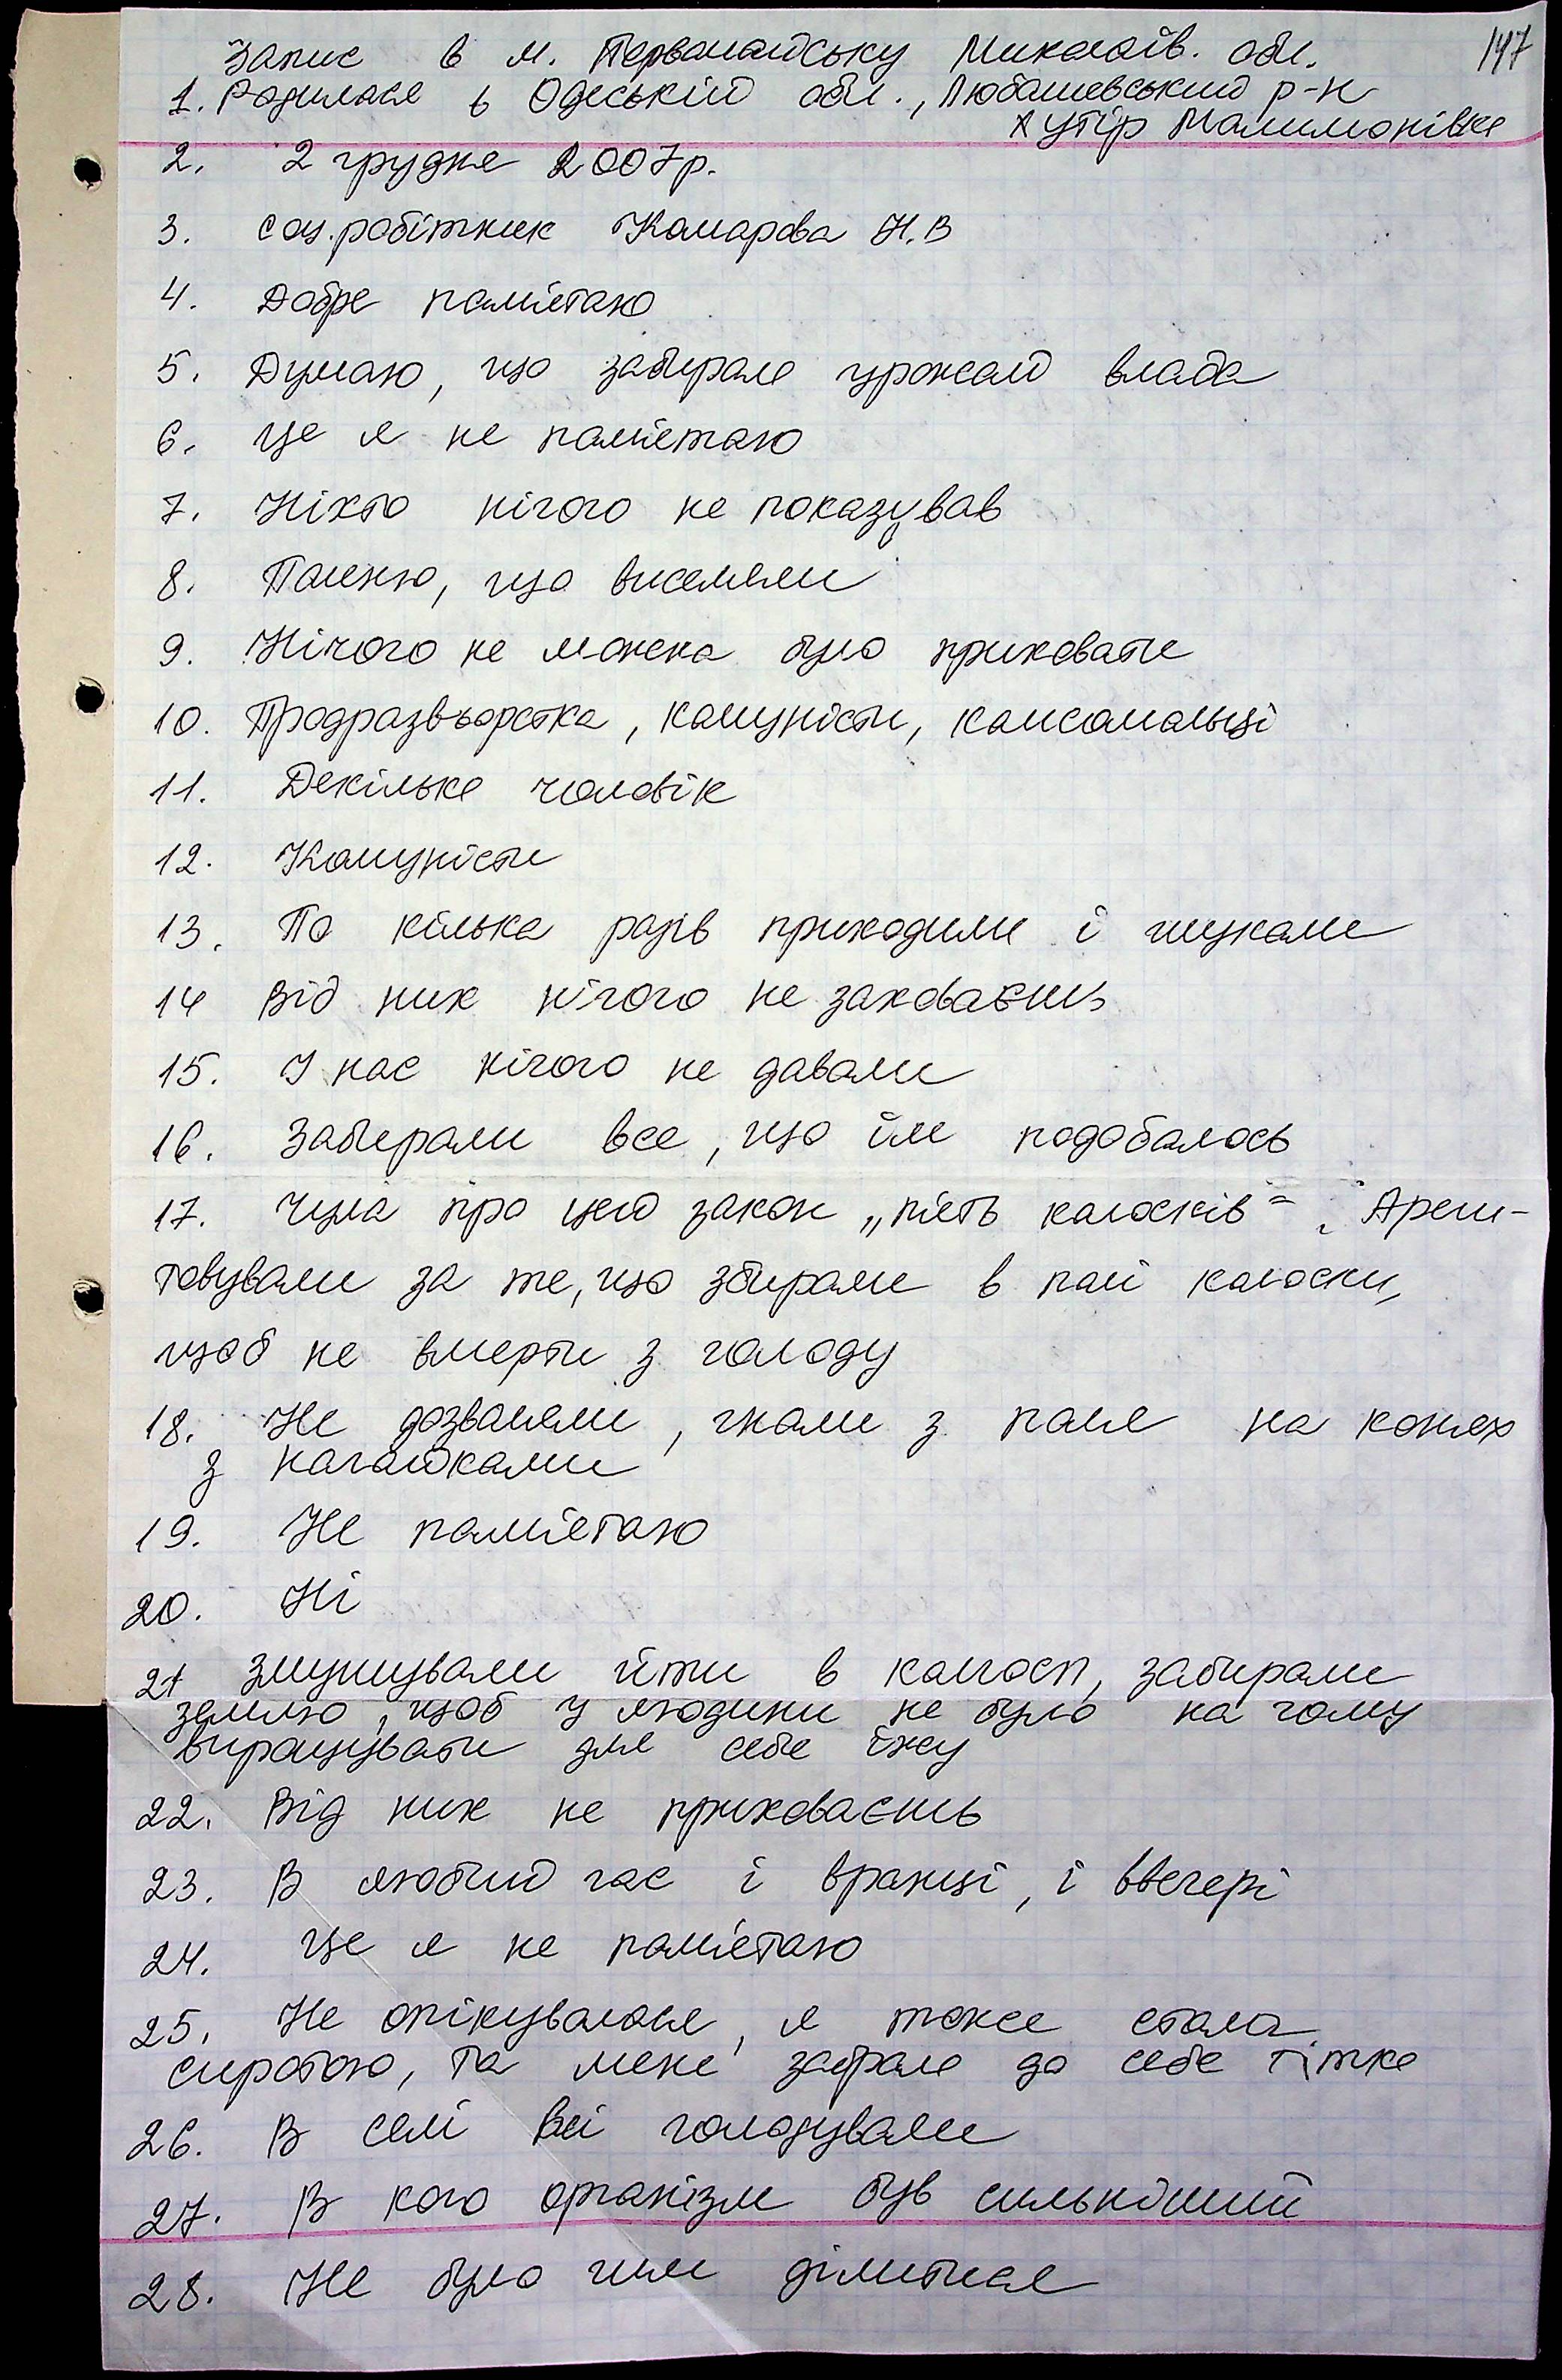 147
Запис в м. Первомайську Миколаїв. обл.
1. Родилася в Одеській обл., Любашевський р-н
хутір Малимонівка
2. 2 грудня 2007р.
3. соц.робітник Комарова Н.В
4. Добре пам'ятаю
5. Думаю, що забирала урожай влада
6. Це я не пам'ятаю
7. Ніхто нічого не показував
8. Помню, що виселяли
9. Нічого не можна було приховати
10. Продразвьорстка, комуністи, комсомольці
11. Декілька чоловік
12. Комуністи
13. По кілька разів приходили і шукали
14 Від них нічого не заховаєшь
15. У нас нічого не давали
16. Забирали все, що їм подобалось
17. Чула про цей закон „п'ять колосків". Ареш-
товували за те, що збирали в полі колоски,
щоб не вмерти з голоду
18. Не дозваляли, гнали з поля на конях
з нагайками
19. Не пам'ятаю
20. Ні
21 Змушували йти в колгосп, забирали
землю, щоб у людини не було на чому
вирощувати для себе їжу
22. Від них не приховаєшь
23. В любий час і вранці, і ввечері
24. Це я не пам'ятаю
25. Не опікувалася, я тоже стала
сиротою, та мене забрала до себе тітка
26. В селі всі голодували
27. В кого організм був сильніший
28. Не було чим ділитися